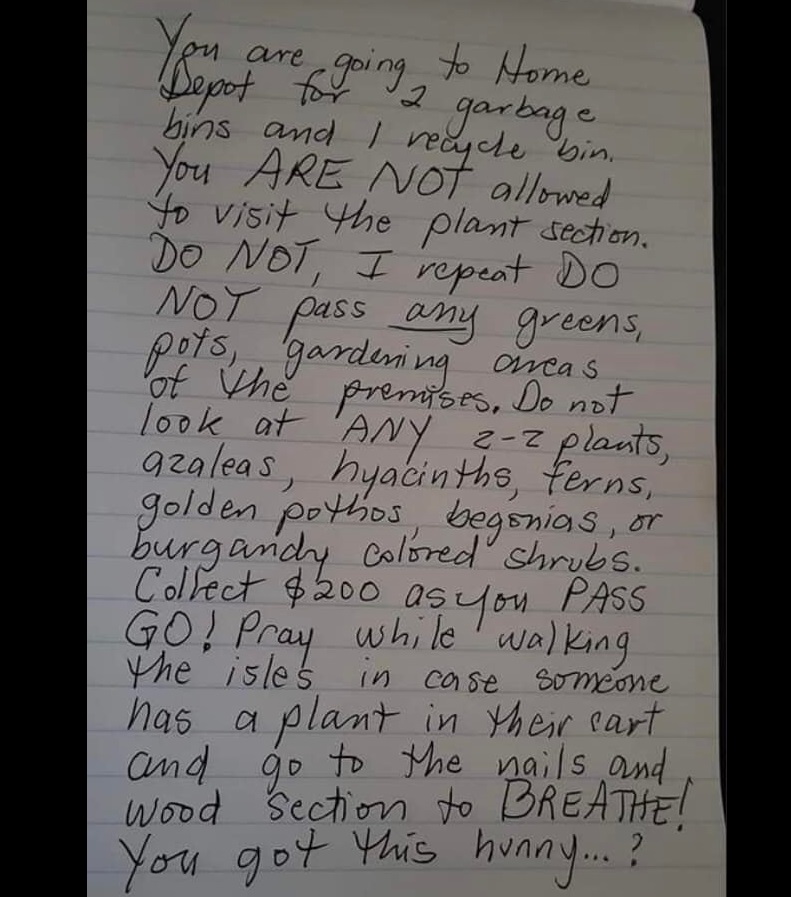 You are going to Home
Depot for 2 garbage
bins and 1 recycle bin.
You ARE NOT allowed
to visit the plant section.
DO NOT, I repeat DO
NOT pass any greens,
pots, gardening areas
of the premises. Do not
look at ANY z-z plants,
azaleas, hyacinths, ferns,
golden pothos, begonias, or
burgandy colored shrubs.
Collect $200 as you PASS
GO! Pray while walking
the isles in case someone
has a plant in their cart
and go to the nails and
wood section to BREATHE!
You got this hunny...?